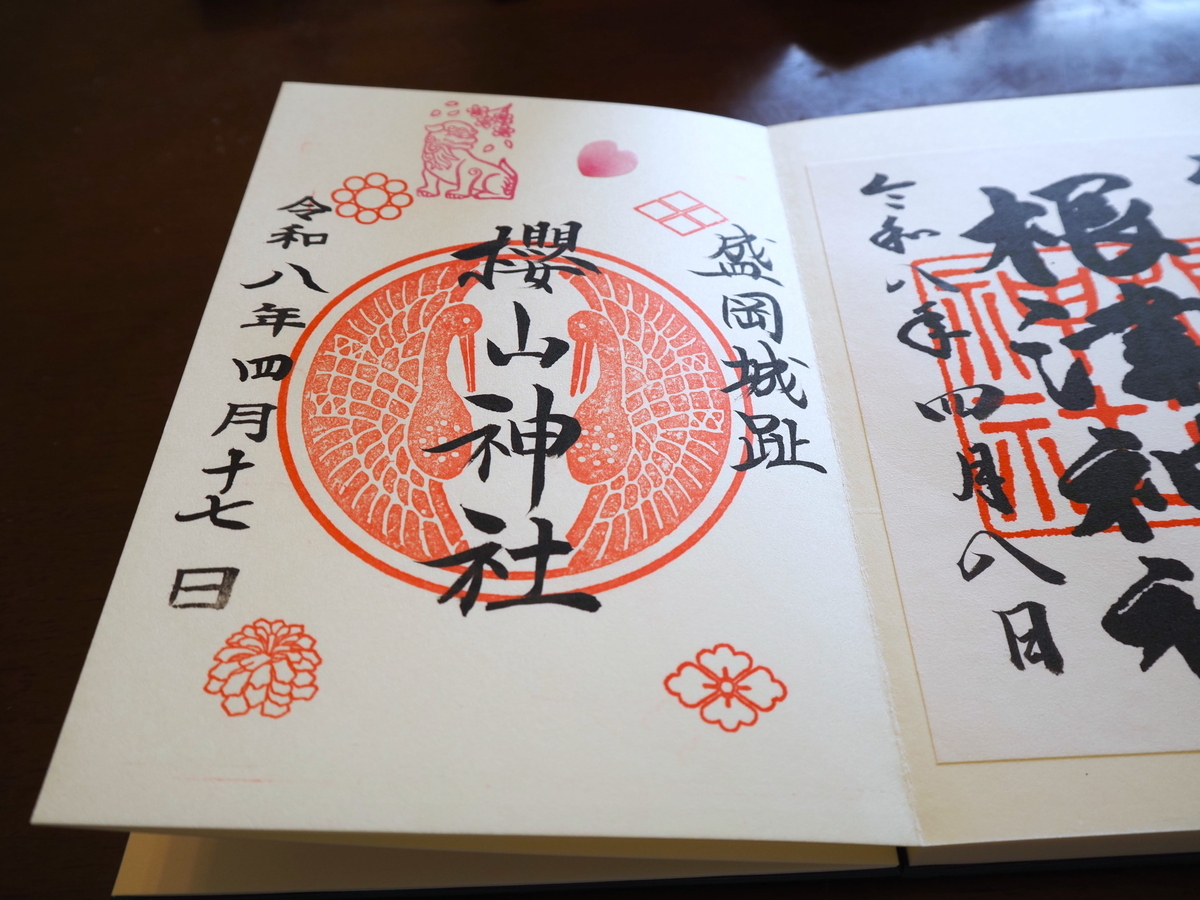 盛岡城趾
櫻山神社
令和八年四月十七日
根津神
令和八年四月八日